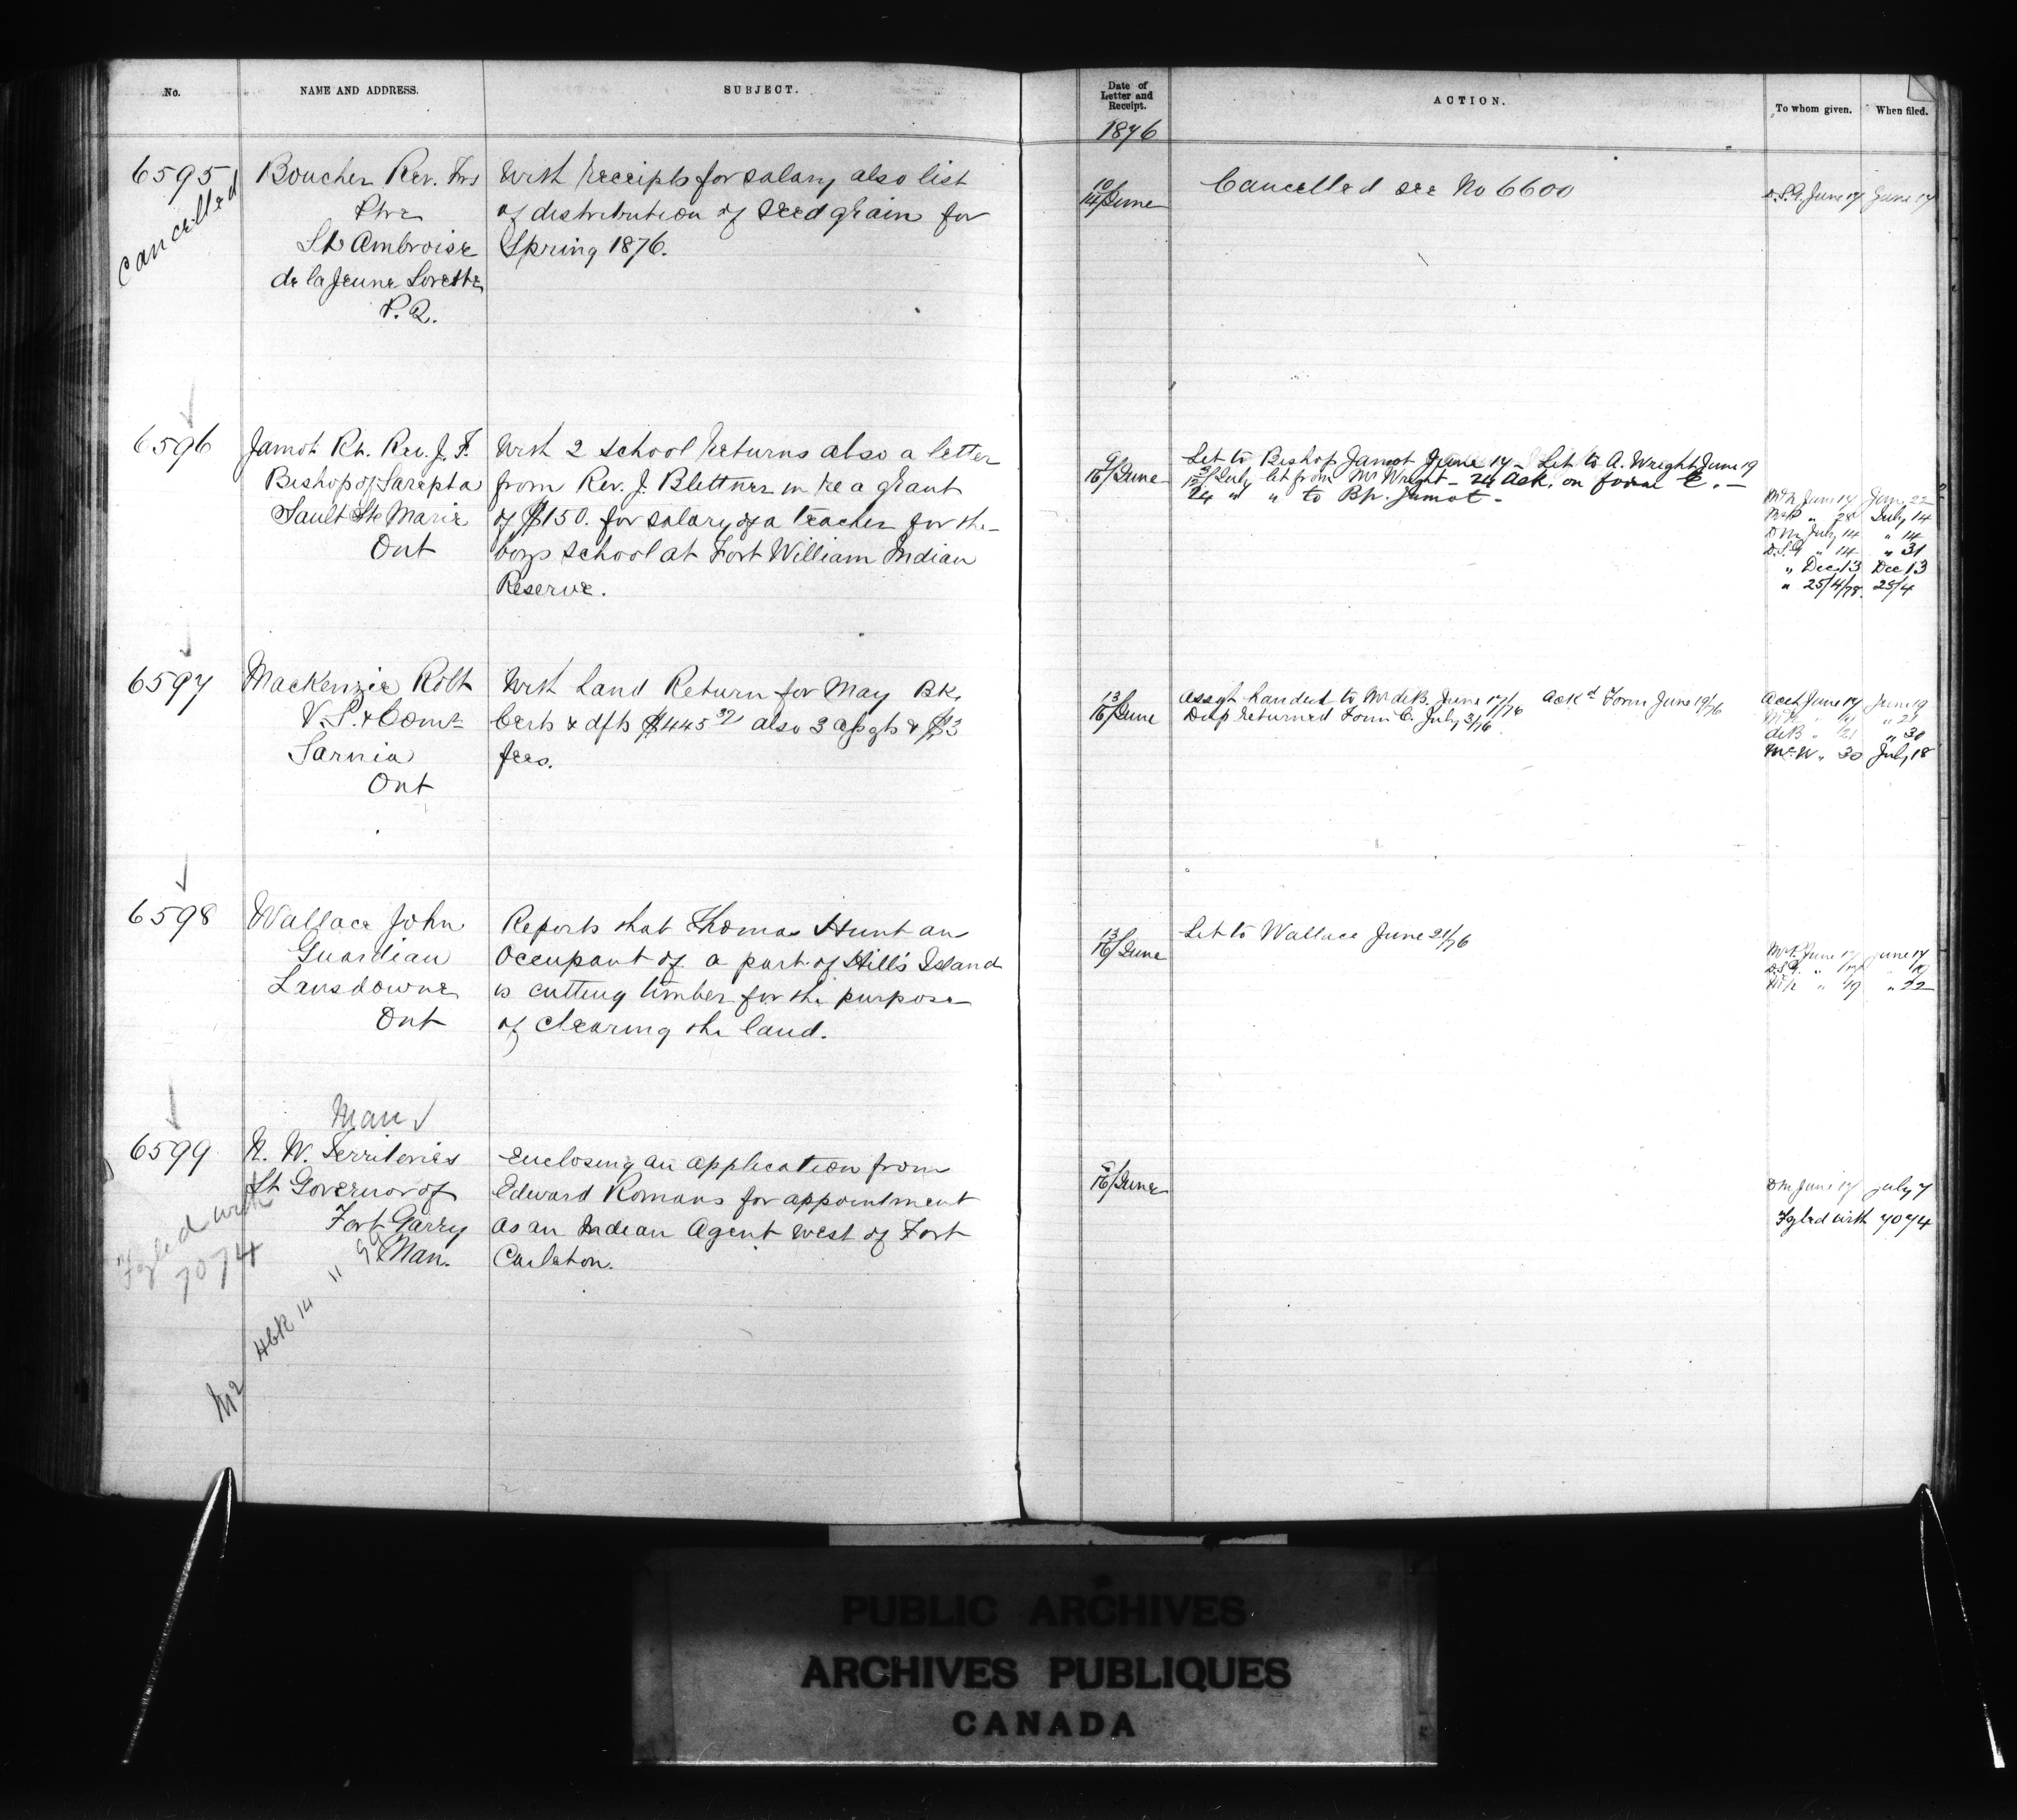 No. NAME AND ADDRESS. SUBJECT. Date of Letter and Receipt. ACTION. To whom given. When filed.
1876
6595 Boucher Rev. Frs With receipts for salary also list
Cancelled
Ptre of distribution of seed grain for
St Ambroise Spring 1876.
de la Jeune Lorette
P.Q.
10/14 June Cancelled see No 6600 D.S.G. June 17 June 17
6596 Jamot Rt. Rev. J. F. With 2 school returns also a letter
Bishop of Sarepta from Rev. J. Blettner in re a grant
Sault Ste Marie of $150. for salary of a teacher for the
Ont boys school at Fort William Indian
Reserve.
9/16 June Let to Bishop Jamot June 17 - Let to A. Wright June 19
July let from Mr Wright - 24 Ack. on form E. -
24 " " to Bp. Jamot -
June 17 June 22
" 28 July 14
July 14 " 14
D.S.G " 14 " 31
" Dec 13 Dec 13
" 25/4/78. 25/4
6597 MacKenzie Robt With Land Return for May Bk.
V.S. & Comr Certs & dfts $445 37 also 3 assgts & $3
Sarnia fees.
Ont
13/16 June Assgt handed to Mr deB. June 17/76 Ackd Form June 19/76
Dup returned Form C. July 3/76.
Acct June 17 June 19
" 21
deB " 21 " 30
McW " 30 July 18
6598 Wallace John Reports that Thomas Hunt an
Guardian Occupant of a part of Hill's Island
Lansdowne is cutting timber for the purpose
Ont of clearing the land.
13/16 June Let to Wallace June 21/76
June 17 June 17
D.S.G. " 17 " 19
" 19 " 22
Man
6599 N. W. Territories Enclosing an application from
Lt Governor of Edward Romans for appointment
Fort Garry as an Indian Agent west of Fort
Man. Carleton.
Fyled with
7074
Hbk 14
" 99
M2
8/16 June DM June 17 July 7
Fyled with 7074
PUBLIC ARCHIVES
ARCHIVES PUBLIQUES
CANADA